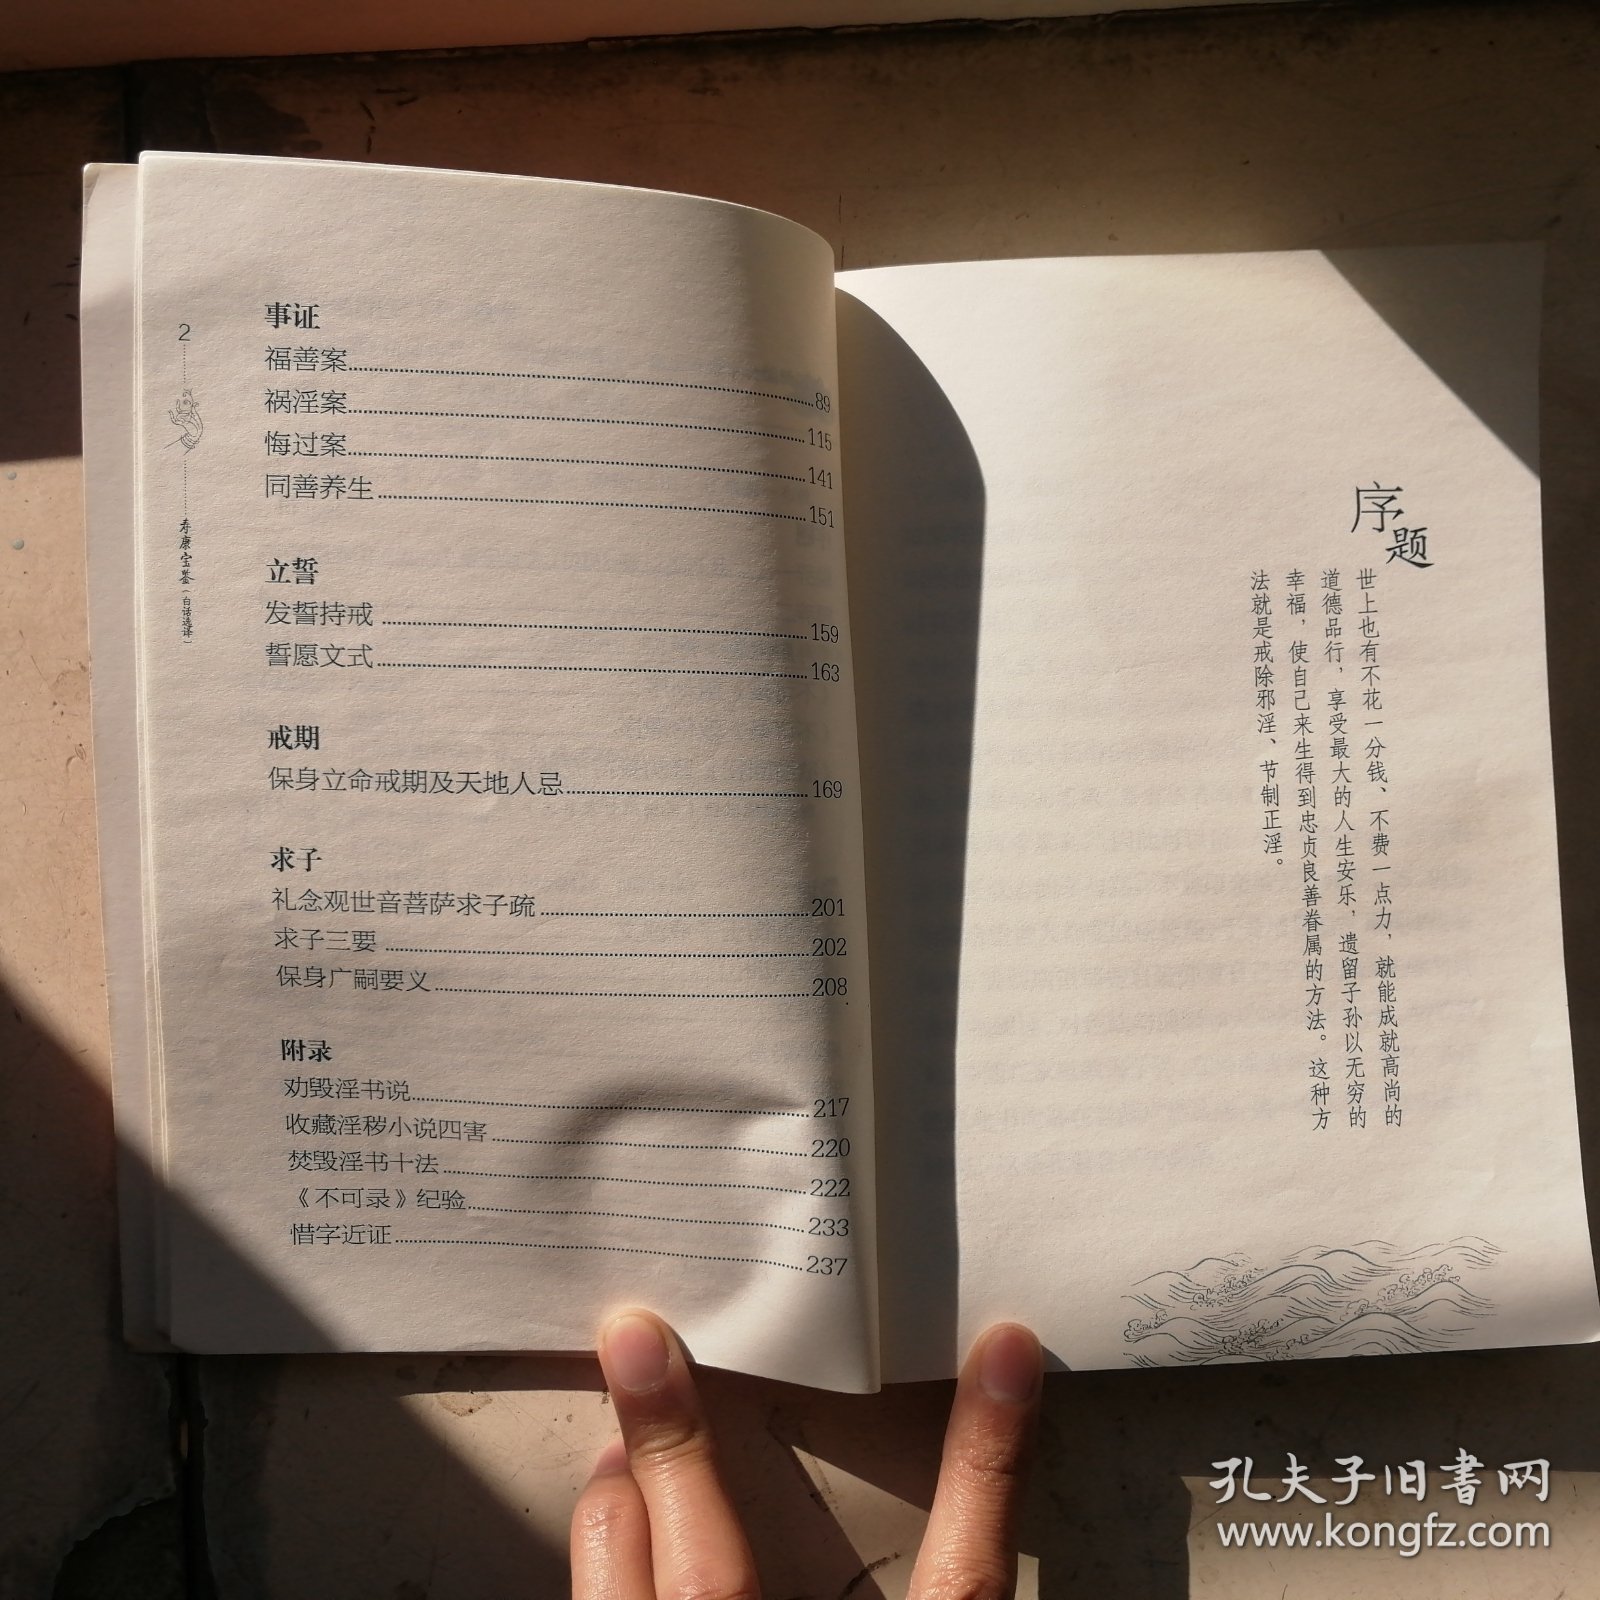 2
寿康宝鉴（白话选译）
事证
福善案 89
祸淫案 115
悔过案 141
同善养生 151
立誓
发誓持戒 159
誓愿文式 163
戒期
保身立命戒期及天地人忌 169
求子
礼念观世音菩萨求子疏 201
求子三要 202
保身广嗣要义 208
附录
劝毁淫书说 217
收藏淫秽小说四害 220
焚毁淫书十法 222
《不可录》纪验 233
惜字近证 237
序题
世上也有不花一分钱、不费一点力，就能成就高尚的
道德品行，享受最大的人生安乐，遗留子孙以无穷的
幸福，使自己来生得到忠贞良善眷属的方法。这种方
法就是戒除邪淫、节制正淫。
孔夫子旧书网
www.kongfz.com